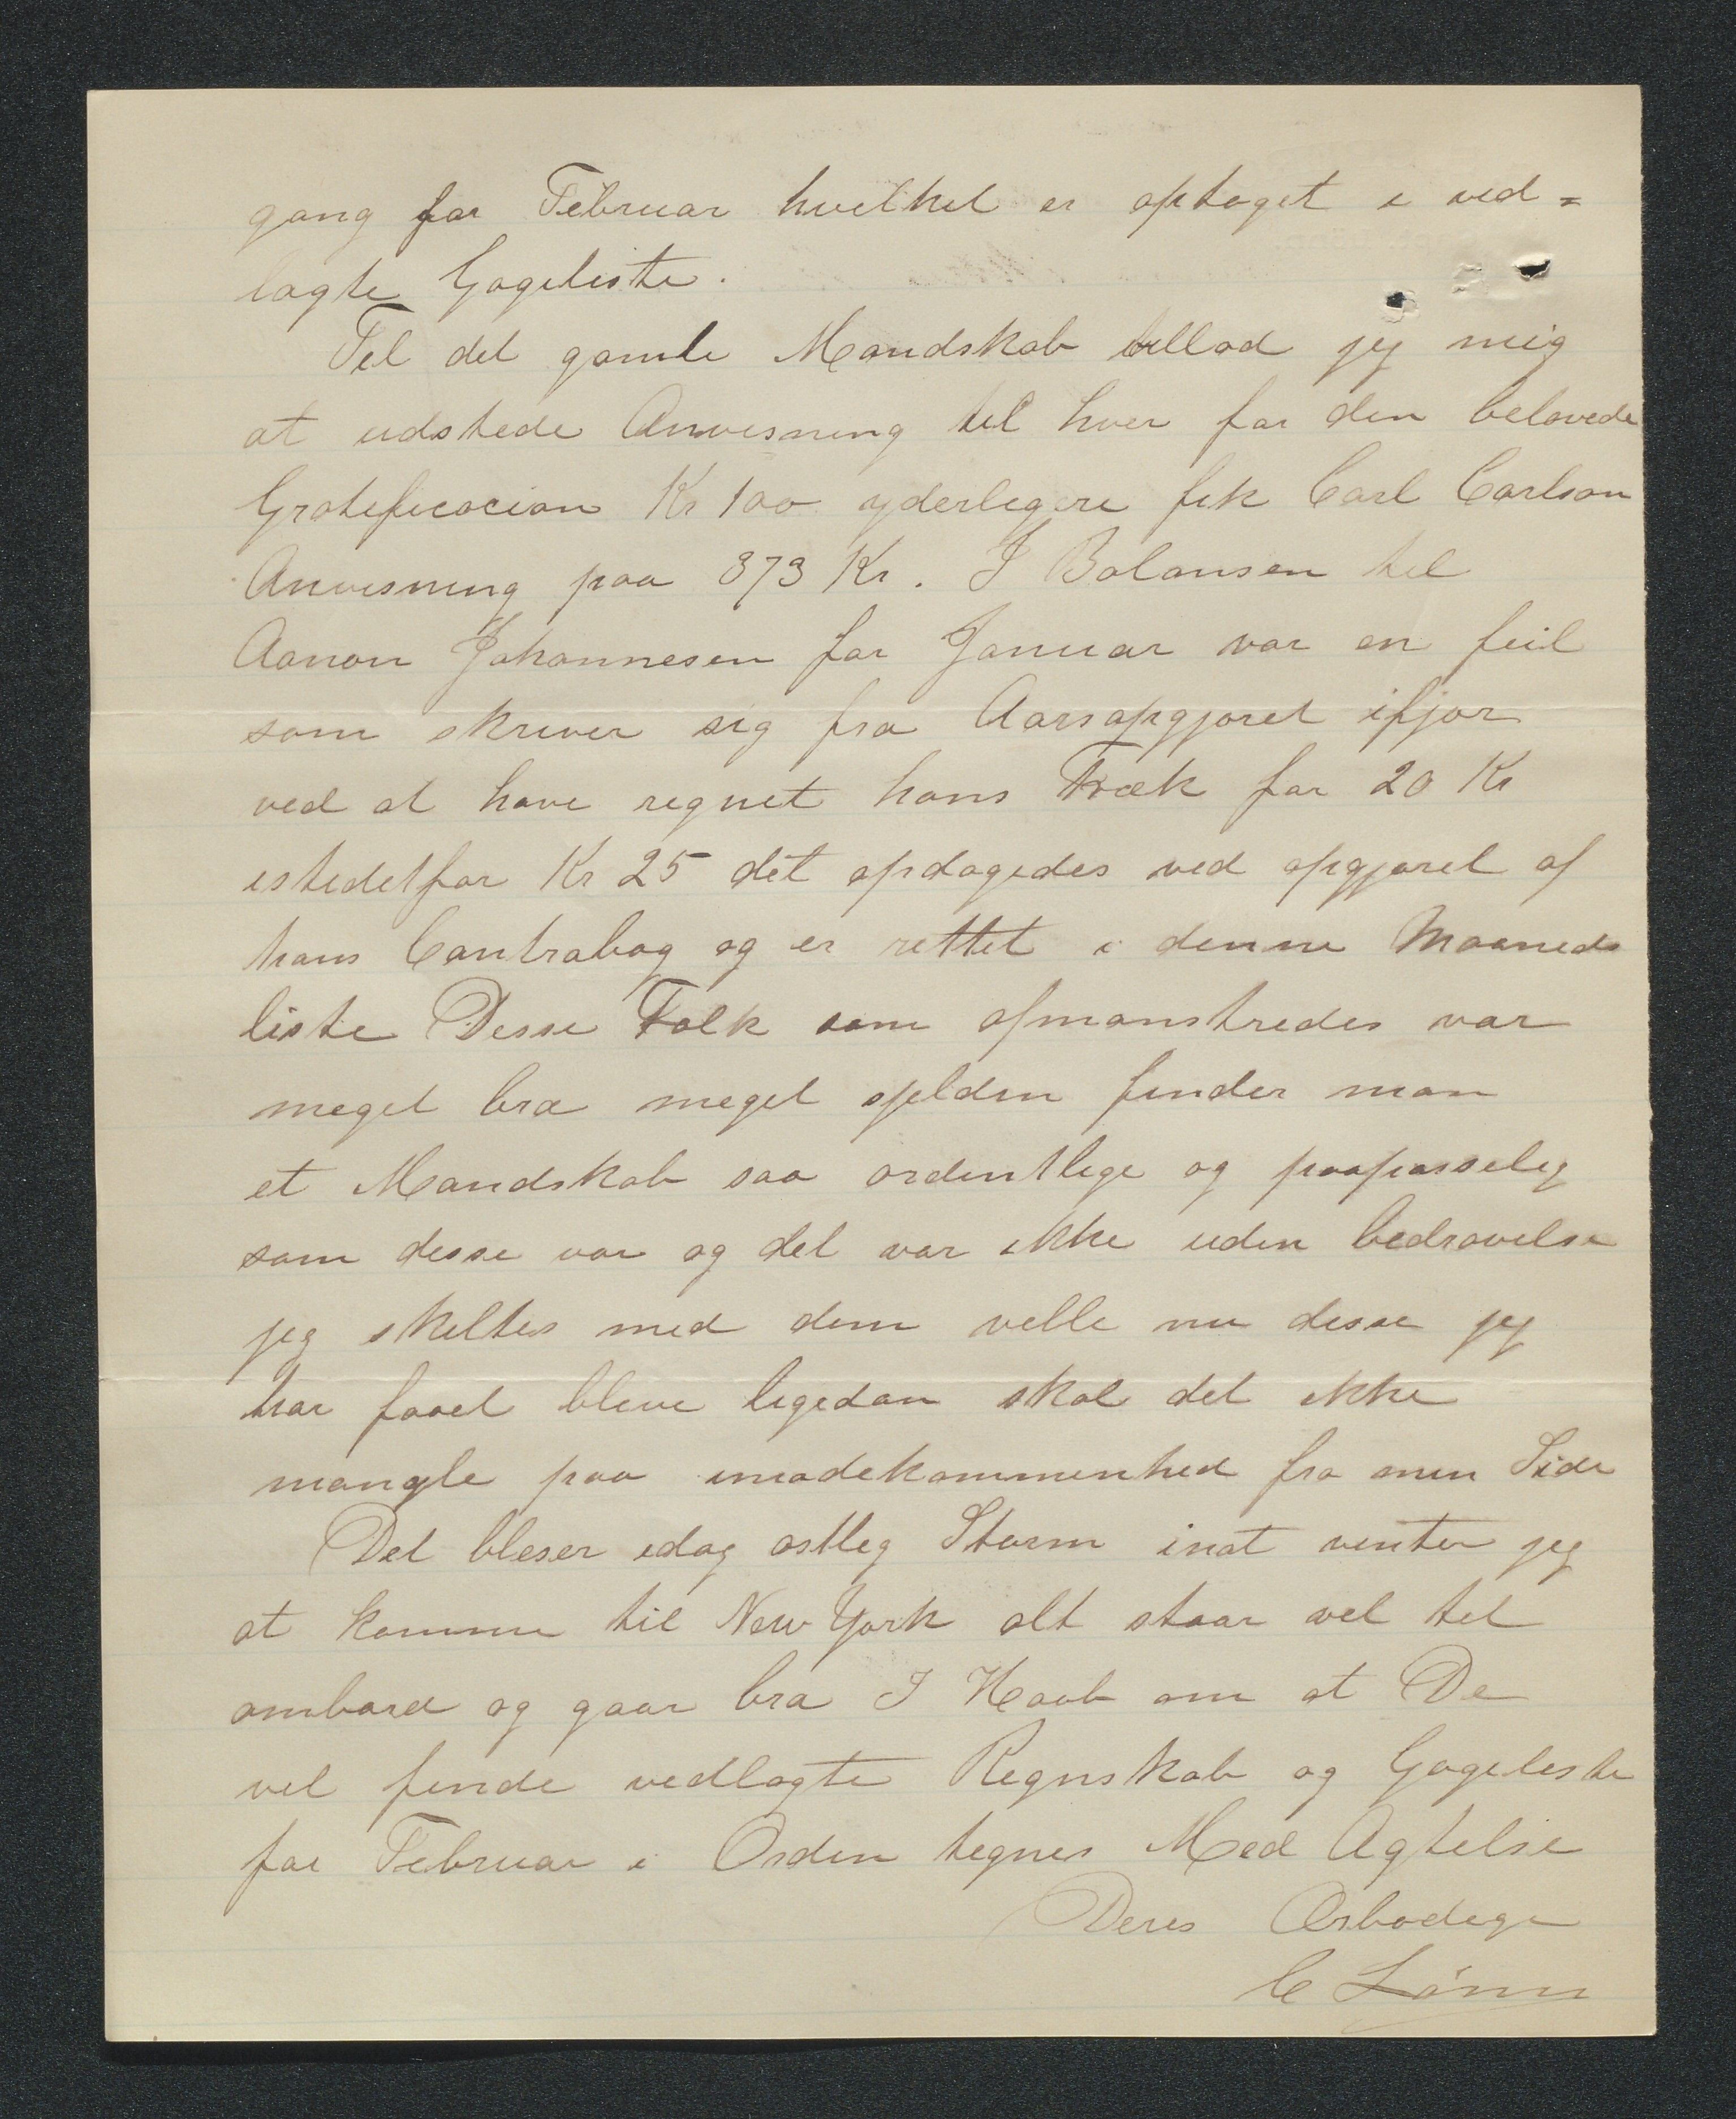 gang for Februar hvilket er optaget i ved=
lagte Gageliste.
Til det gamle Mandskab tillod jeg mig
at udstede Anvisning til hver for den belovede
Gratificacion Kr 100 yderligere fik Carl Carlson
Anvisning paa 373 Kr. I Balansen til
Aanon Johannesen for Januar var en feil
som skriver sig fra Aarsopgjøret ifjor
ved at have regnet hans Træk for 20 Kr
istedetfor Kr 25 det opdagedes ved opgjøret af
hans Contrabog og er rettet i denne Maaneds
liste Disse Folk som afmønstredes var
meget bra meget sjelden finder man
et Mandskab saa ordentlige og paapasselig
som disse var og det var ikke uden bedrøvelse
jeg skiltes med dem vilde nu disse jeg
har faaet blive ligedan skal det ikke
mangle paa imødekommenhed fra min Side
Det blæser idag østlig Storm inat venter jeg
at komme til New York alt staar vel til
ombord og gaar bra I Haab om at De
vil finde vedlagte Regnskab og Gageliste
for Februar i Orden tegner Med Agtelse
Deres Ærbødige
C Lönn